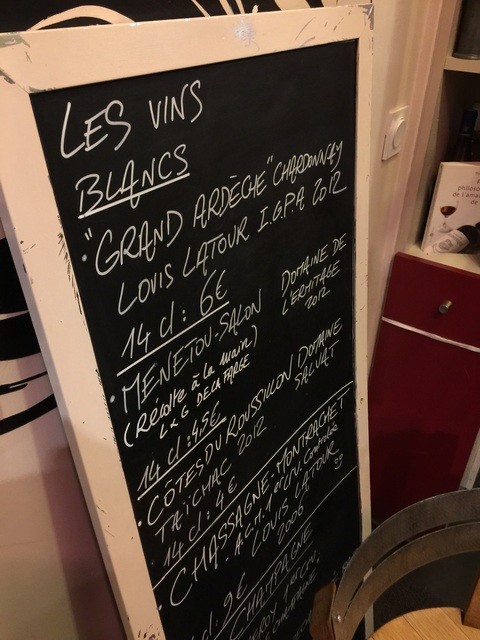 LES VINS
BLANCS
• "GRAND ARDÈCHE" CHARDONNAY
LOUIS LATOUR I.G.P.A 2012
14 cl : 6€
• MENETOU-SALON DOMAINE DE
L'ERMITAGE
2012
(Récolte à la main)
L & G DE LA FARGE
14 cl : 4,5€
• COTES DU ROUSSILLON DOMAINE
SALVAT
TAÏCHAC 2012
14 cl : 4€
• CHASSAGNE-MONTRACHET
1er cru Contrôlée
LOUIS LATOUR
2006
cl : 9€
CHAMPAGNE
1er CRU
philoso
de l'ama
de